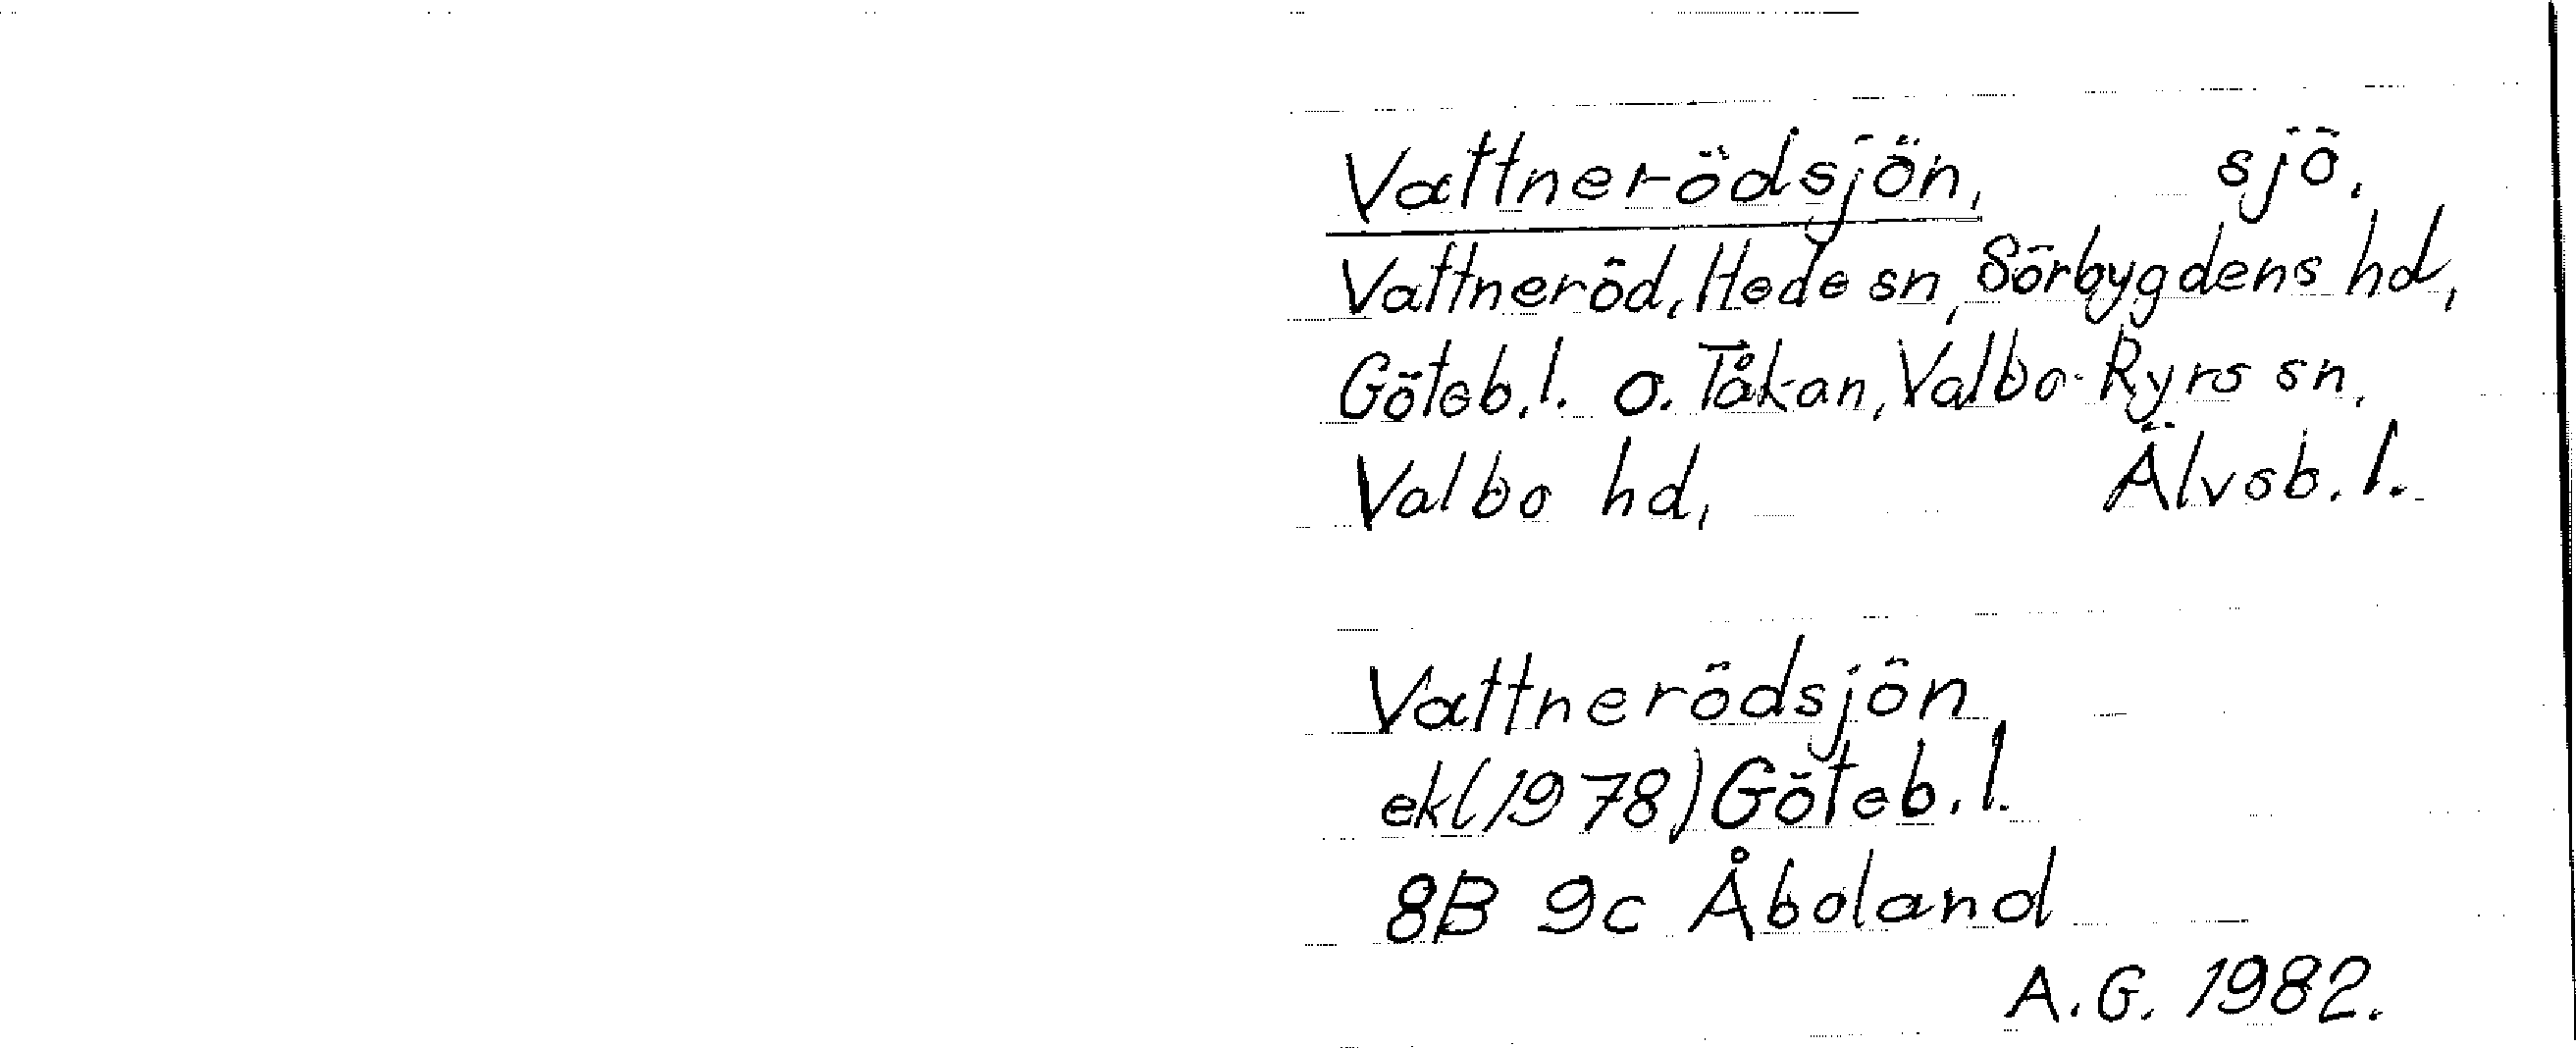 Vattnerödsjön, sjö.
Vattneröd, Hede sn, Sörbygdens hd,
Göteb. l. o. Tåkan, Valbo-Ryrs sn.
Valbo hd, Älvsb. l.
Vattnerödsjön
ekl(1978) Göteb. l.
8B 9c Åboland
A.G. 1982.